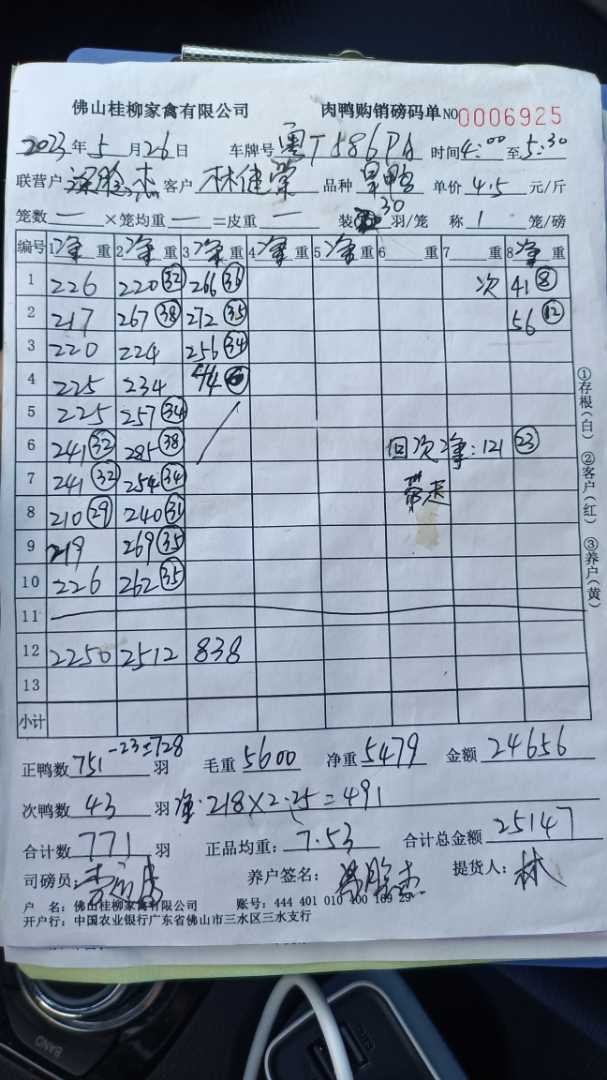 佛山桂柳家禽有限公司 肉鸭购销磅码单 NO 0006925
2023年5月26日 车牌号 粤T586PA 时间4:00至5:30
联营户 杰 客户 林健荣 品种 旱鸭 单价 4.5 元/斤
笼数 一 ×笼均重 一 =皮重 一 装 30 羽/笼 称 1 笼/磅
编号 1 净 重 2 净 重 3 净 重 4 净 重 5 净 重 6 重 7 重 8 净 重
1 226 220 32 266 35 次 41 8
2 217 267 38 272 35 56 12
3 220 224 256 34
4 225 234
5 225 257 34
6 241 32 285 38 回次净:121 23
7 241 32 254 34 带走
8 210 29 240 31
9 219 269 35
10 226 262 35
11
12 2250 2512 838
13
小计
正鸭数 751-23=728 羽 毛重 5600 净重 5479 金额 24656
次鸭数 43 羽 净:218×2.25=491
合计数 771 羽 正品均重: 7.53 合计总金额 25147
司磅员: 养户签名: 杰 提货人: 林
户 名: 佛山桂柳家禽有限公司 账号: 444 401 010 400 169 29
开户行: 中国农业银行广东省佛山市三水区三水支行
①存根(白) ②客户(红) ③养户(黄)
BAND